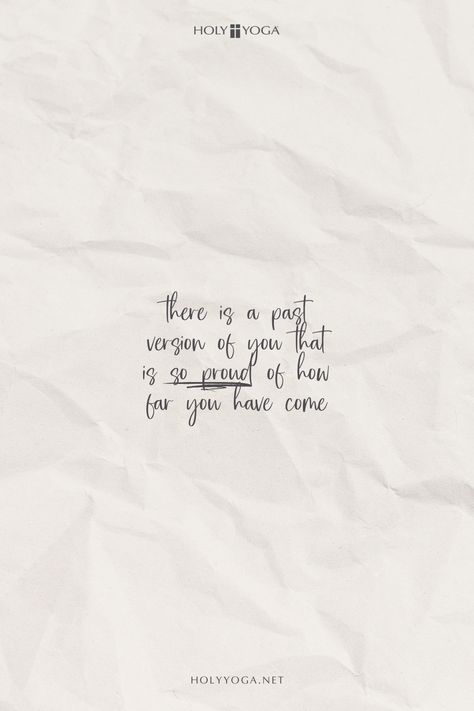 HOLY YOGA
there is a past
version of you that
is so proud of how
far you have come
HOLYYOGA.NET